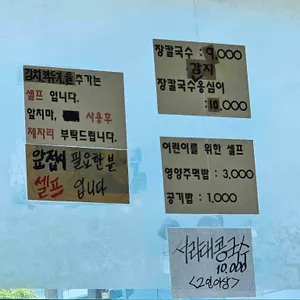 김치,깍두기,물추가는
셀프 입니다.
앞치마, 사용후
제자리 부탁드립니다.
앞접시 필요한 분
셀프 입니다
장칼국수 : 9,000
감자
장칼국수옹심이
:10,000
어린이를 위한 셀프
영양주먹밥 : 3,000
공기밥 : 1,000
서리태콩국수
10,000
<2인이상>